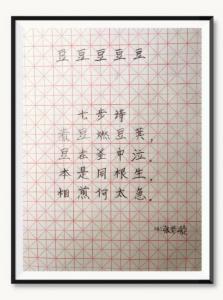 豆豆豆豆豆
七步诗
煮豆燃豆萁，
豆在釜中泣。
本是同根生，
相煎何太急。